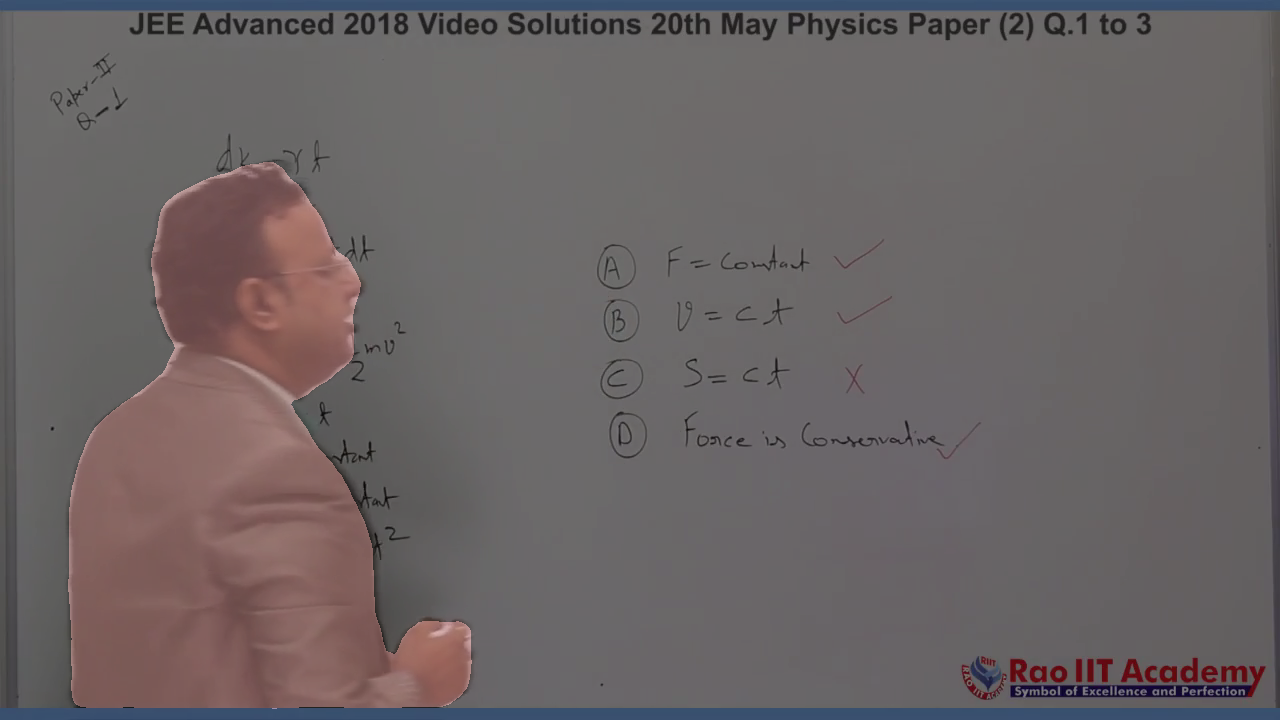 JEE Advanced 2018 Video Solutions 20th May Physics Paper (2) Q.1 to 3
Paper-II
Q-1
dk γt
dt
1/2 mv²
t
t²
(A) F = Constant ✓
(B) v = ct ✓
(C) S = ct X
(D) Force is Conservative ✓
RIIT
RAO IIT ACADEMY
Rao IIT Academy
Symbol of Excellence and Perfection